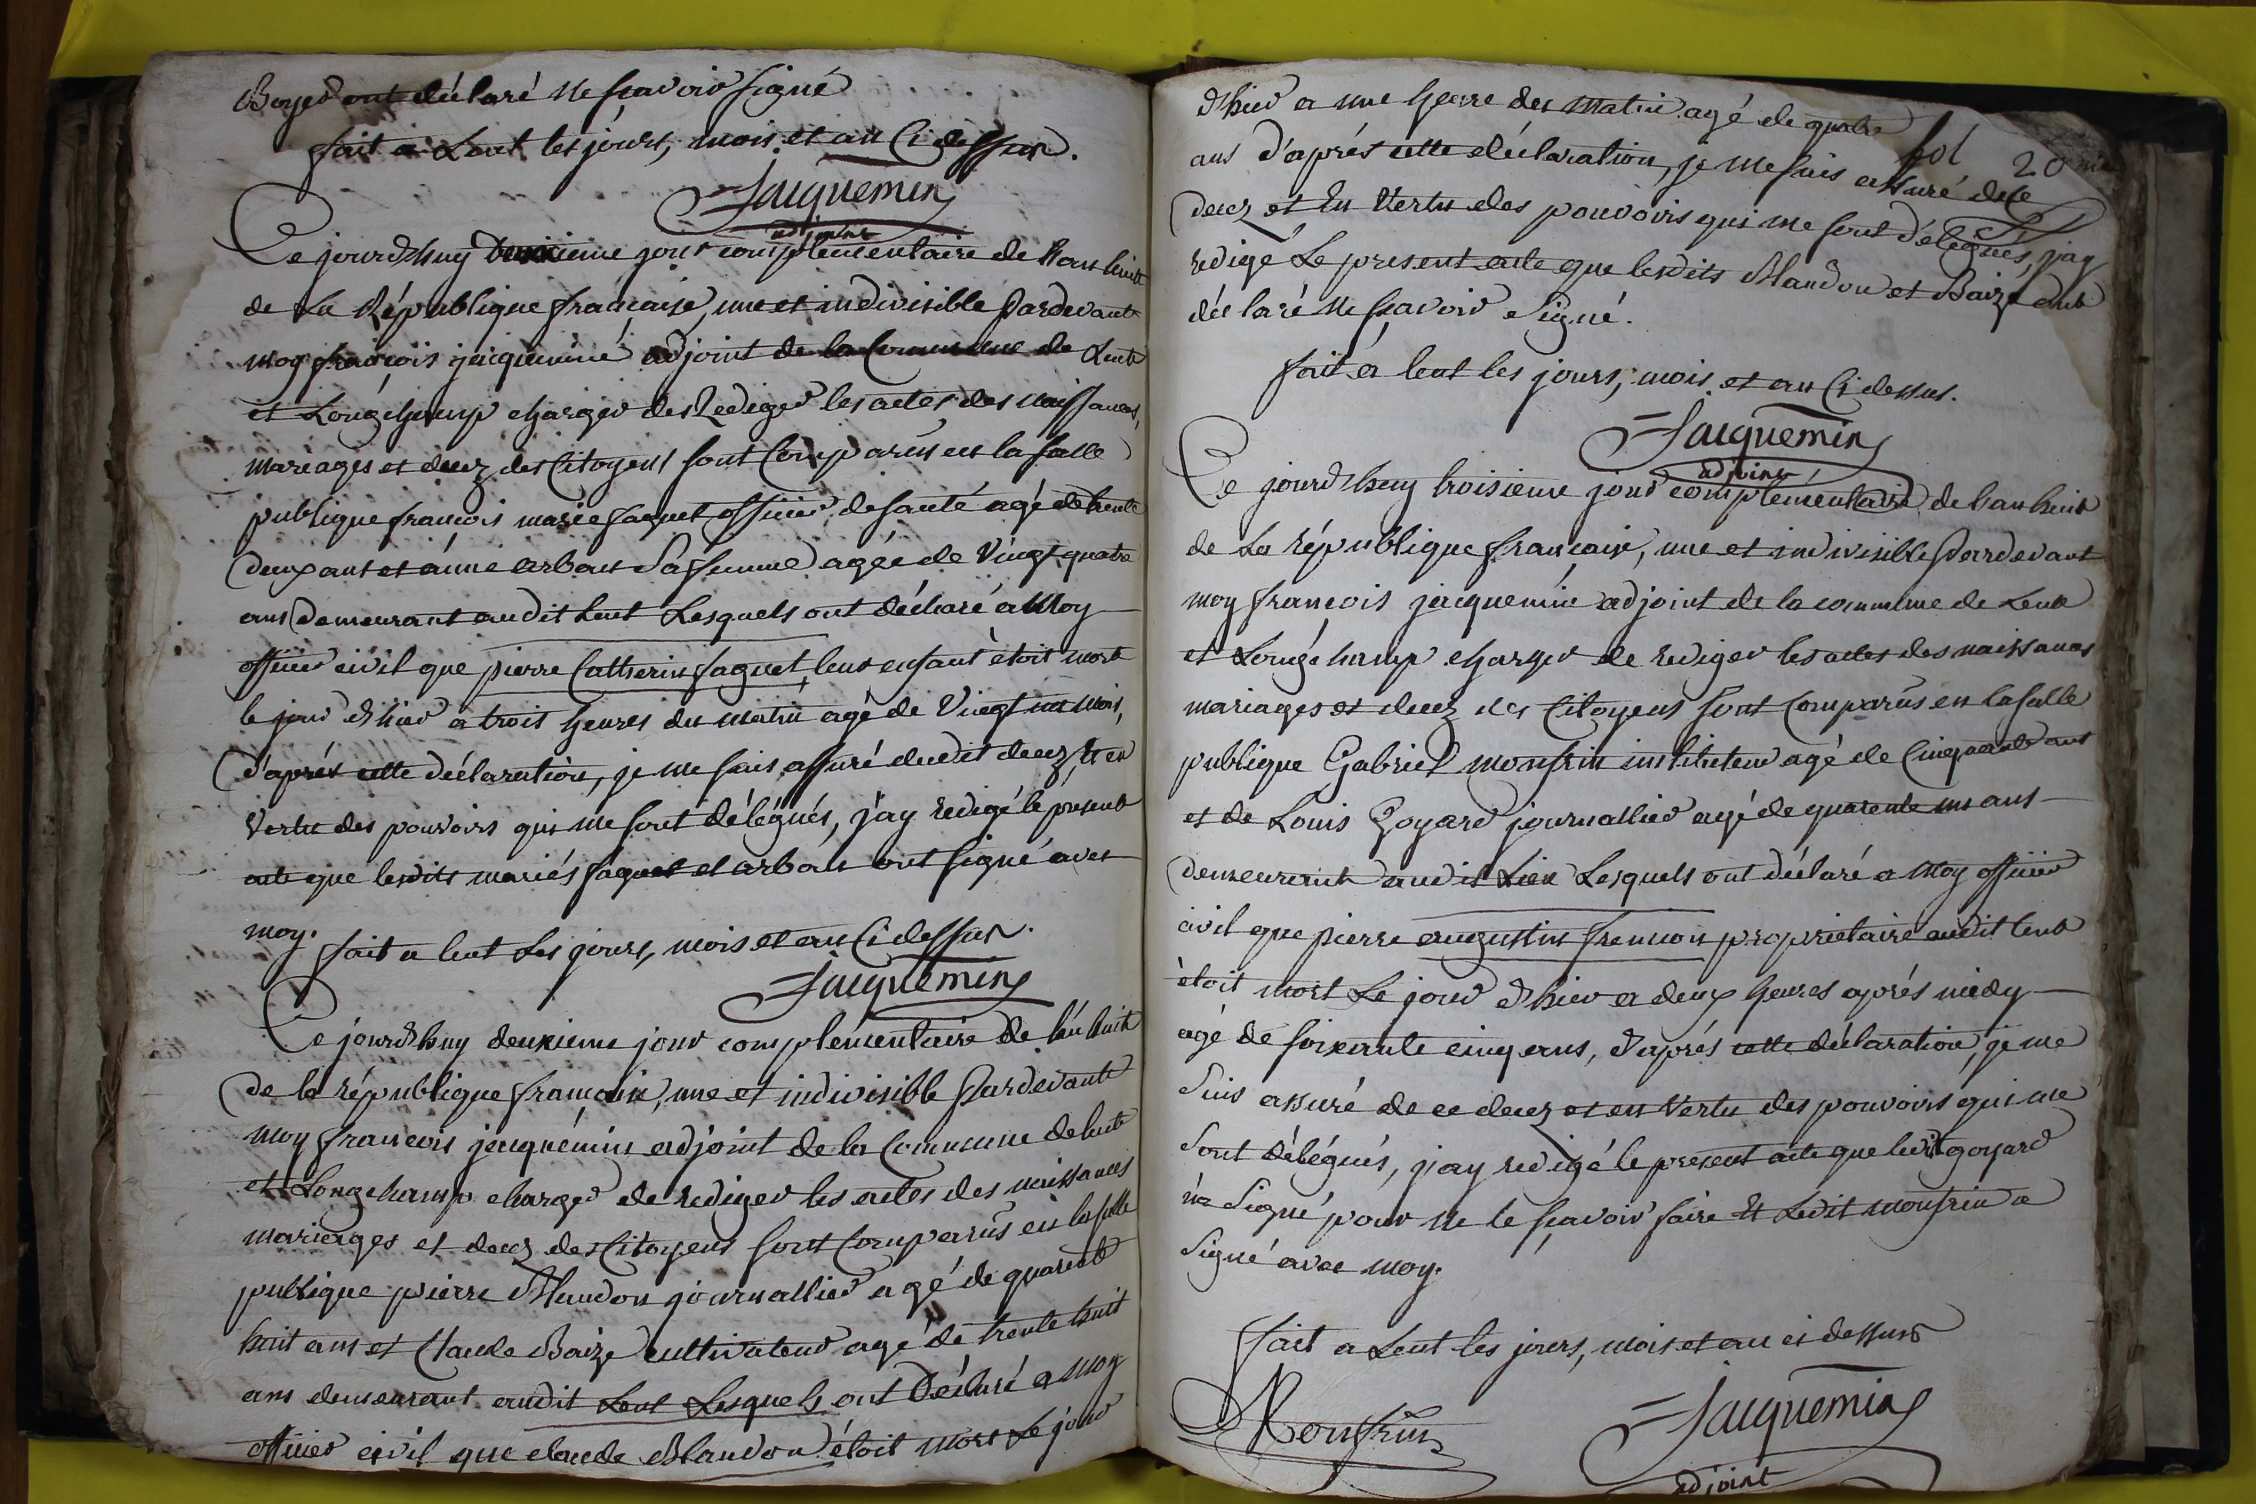 Boyer ont déclaré ne sçavoir signé
fait a Lent les jours, mois et an Ci dessus.
Jacquemin
adjoint
Ce jourdhuy deuxieme jour complementaire de l'an huit
de La République française, une et indivisible Pardevant
moy françois jacquemin adjoint de la Commune de Lent
et Longchamp charger des Rediger les actes des naissances,
mareages et decez des Citoyens sont Comparus en la salle
publique françois marie faguet officier de santé agé de trente
deux ans et anne arban Sa femme agée de Vingt quatre
ans demeurant audit lent Lesquels ont déclaré a Moy
officier civil que pierre Catherin faguet leur enfant êtoit mort
le jour d'hier a trois heures du matin agé de Vingt un mois,
d'aprés cette déclaration, je me suis assuré dudit decez, Et en
Vertu des pouvoirs qui me sont délégués, j'ay redigé le présent
acte que lesdits mariés faguet et arban ont signé avec
moy.
fait a lent Les jours, mois et an Ci dessus.
Jacquemin
Ce jourdhuy deuxieme jour complémentaire de l'an huit
de la république française, une et indivisible Pardevant
moy françois jacquémin adjoint de la Commune de lent
et Longchamp charger de rediger les actes des naissances
mariages et decez des Citoyens sont Comparus en la salle
publique pierre Blandon journallier agé de quarente
huit ans et Claude Baize cultivateur agé de trente huit
ans demeurant audit Lent Lesquels ont Déclaré a moy
officier civil que claude Blandon étoit mort Le jour
fol 20
d'hier a une heure du matin agé de quatre
ans d'aprés cette déclaration, je me suis assuré de ce
decez et En Vertu des pouvoirs qui me sont délégués, j'ay
redigé Le present acte que lesdits Blandon et Baize ont
déclaré ne sçavoir Signé.
fait a lent les jours, mois et an Ci dessus.
Jacquemin
adjoint
Ce jourdhuy troisieme jour complémentaire de l'an huit
de La république française, une et indivisible Pardevant
moy françois jacquemin adjoint de la commune de Lent
et Longchamp charger de rediger les actes des naissances
mariages et decez des Citoyens sont Comparus en la salle
publique Gabriel monfrin instituteur agé de Cinquante ans
et de Louis Goyard journallier agé de quarente un ans
demeurant audit Lieu Lesquels ont déclaré a moy officier
civil que pierre augustin frennon propriétaire audit lent
êtoit mort Le jour d'hier a deux heures aprés midy
agé de soixante cinq ans, d'aprés cette déclaration, je me
Suis assuré de ce decez et en Vertu des pouvoirs qui me
Sont délégués, j'ay redigé le present acte que ledit goyard
n'a Signé pour ne le sçavoir faire Et Ledit monfrin a
Signé avec moy.
fait a Lent les jours, mois et an ci dessus
Monfrin
Jacquemin
adjoint